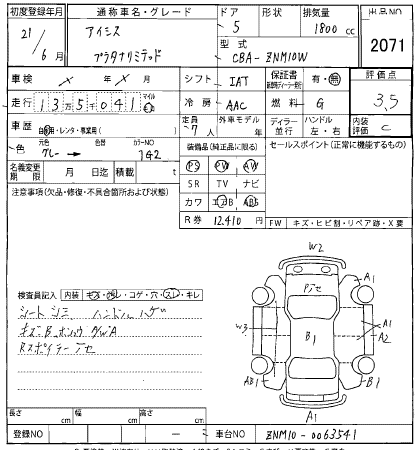 初度登録年月 通称車名・グレード ドア 形状 排気量 出品NO
21/6月 アイシス プラタナリミテッド 5 1800cc 2071
型式 CBA-ZNM10W
車検 × 年 × 月 シフト IAT 保証書 有・無 評価点
走行 13万5千041 マイル 冷房 AAC 燃料 G 3.5
車歴 自家用・レンタ・事業用( ) 定員 7人 外車モデル 年 ディラー 並行 ハンドル 左・右 内装評価 C
色 元色 グレー → 色替 カラーNO 1G2 装備品(純正品に限る) セールスポイント(正常に機能するもの)
名義変更期限 月 日迄 積載 t PS PW AW
注意事項(欠品・修復・不具合箇所および状態) SR TV ナビ
カワ エアB ABS
R券 12,410円 FW キズ・ヒビ割・リペア跡・X要
W2
A1
Pアセ
検査員記入 内装 キズ・汚レ・コゲ・穴・スレ・キレ
シートシミ ハンドルハゲ
キズB.ボンネットウWA
Rスポイラーアセ
W3 B1 A1
A2
AB1 B1
A1
長さ cm 幅 cm 高さ cm
登録NO － 車台NO ZNM10-0063541